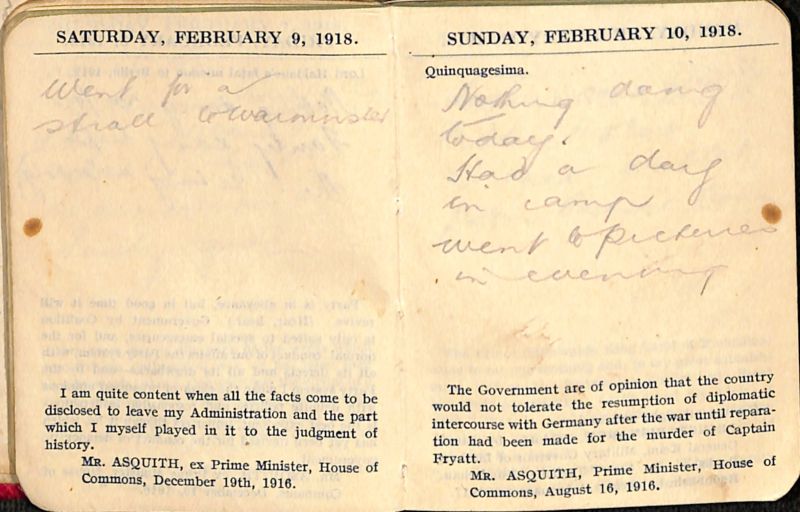 SATURDAY, FEBRUARY 9, 1918.
Went for a
stroll to Warminster
I am quite content when all the facts come to be
disclosed to leave my Administration and the part
which I myself played in it to the judgment of
history.
MR. ASQUITH, ex Prime Minister, House of
Commons, December 19th, 1916.
SUNDAY, FEBRUARY 10, 1918.
Quinquagesima.
Nothing doing
today.
Had a day
in camp
went to pictures
in evening
The Government are of opinion that the country
would not tolerate the resumption of diplomatic
intercourse with Germany after the war until repara-
tion had been made for the murder of Captain
Fryatt.
MR. ASQUITH, Prime Minister, House of
Commons, August 16, 1916.